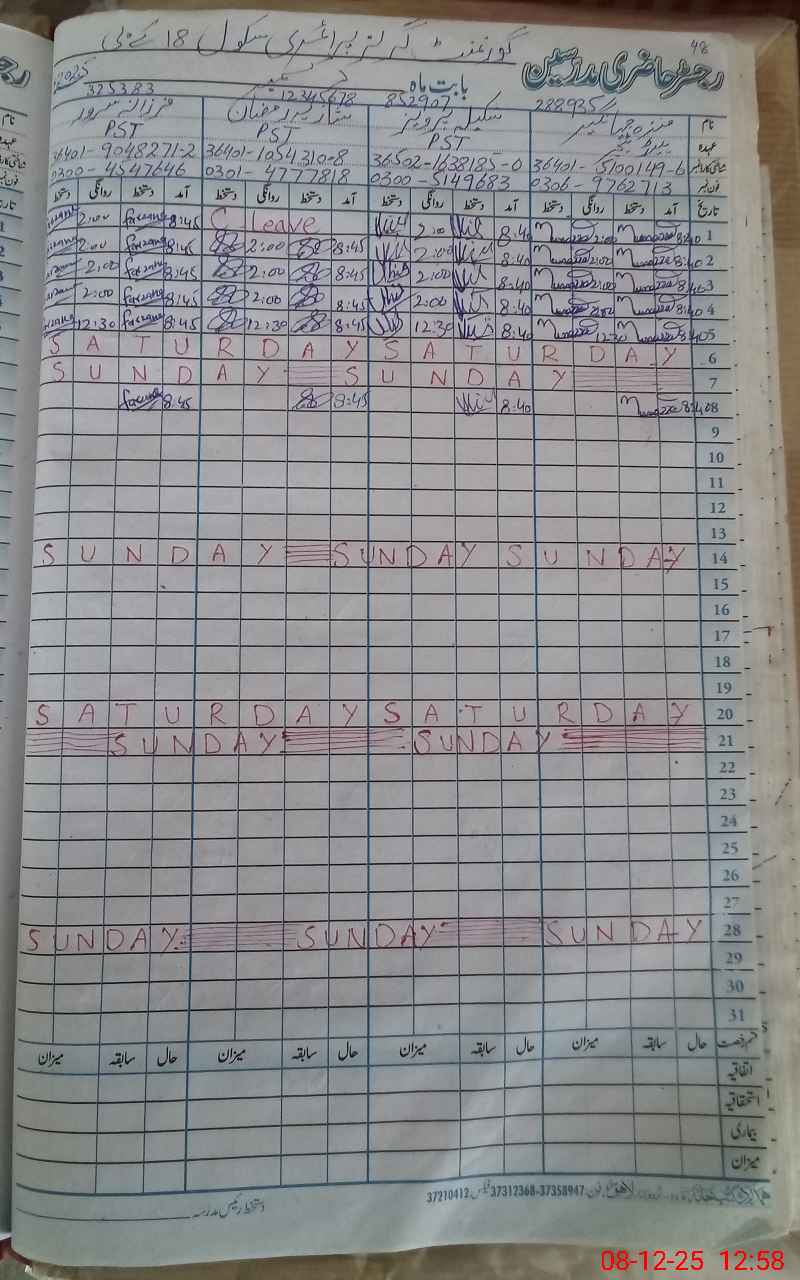 48
گورنمنٹ گرلز پرائمری سکول 18 کے بی
رجسٹر حاضری مدرسین
بابت ماہ دسمبر 2025
325383 12345678 852907 288935
نام منزہ جہانگیر شکیلہ پرویز ستارہ رمضان فرزانہ سرور
عہدہ PST PST PST
36401-5100149-6 36502-1638185-0 36401-1054310-8 36401-9048271-2
فون نمبر 0306-9762713 0300-5149683 0301-4777818 0300-4547646
تاریخ آمد دستخط روانگی دستخط آمد دستخط روانگی دستخط آمد دستخط روانگی دستخط آمد دستخط روانگی دستخط
2:00 8:45 C. Leave 2:00 8:40 2:00 8:40 1
2:00 8:45 2:00 8:45 2:00 8:40 2:00 8:40 2
2:00 8:45 2:00 8:45 2:00 8:40 2:00 8:40 3
2:00 8:45 2:00 8:45 2:00 8:40 2:00 8:40 4
12:30 8:45 12:30 8:45 12:30 8:40 12:30 8:40 5
SATURDAY SATURDAY 6
SUNDAY SUNDAY 7
8:45 8:45 8:40 8:40 8
9
10
11
12
13
SUNDAY SUNDAY SUNDAY 14
15
16
17
18
19
SATURDAY SATURDAY 20
SUNDAY SUNDAY 21
22
23
24
25
26
27
SUNDAY SUNDAY SUNDAY 28
29
30
31
قسم رخصت حال سابقہ میزان حال سابقہ میزان حال سابقہ میزان حال سابقہ میزان
اتفاقیہ
استحقاقیہ
بیماری
میزان
لاہور فون: 37358947-37312368 فیکس 37210412
دستخط رئیس مدرسہ
08-12-25 12:58